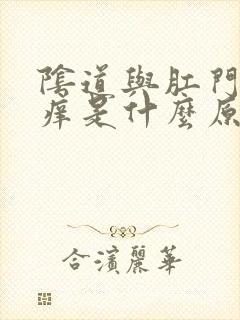 陰道與肛門
痒是什麼原
合濱麗華